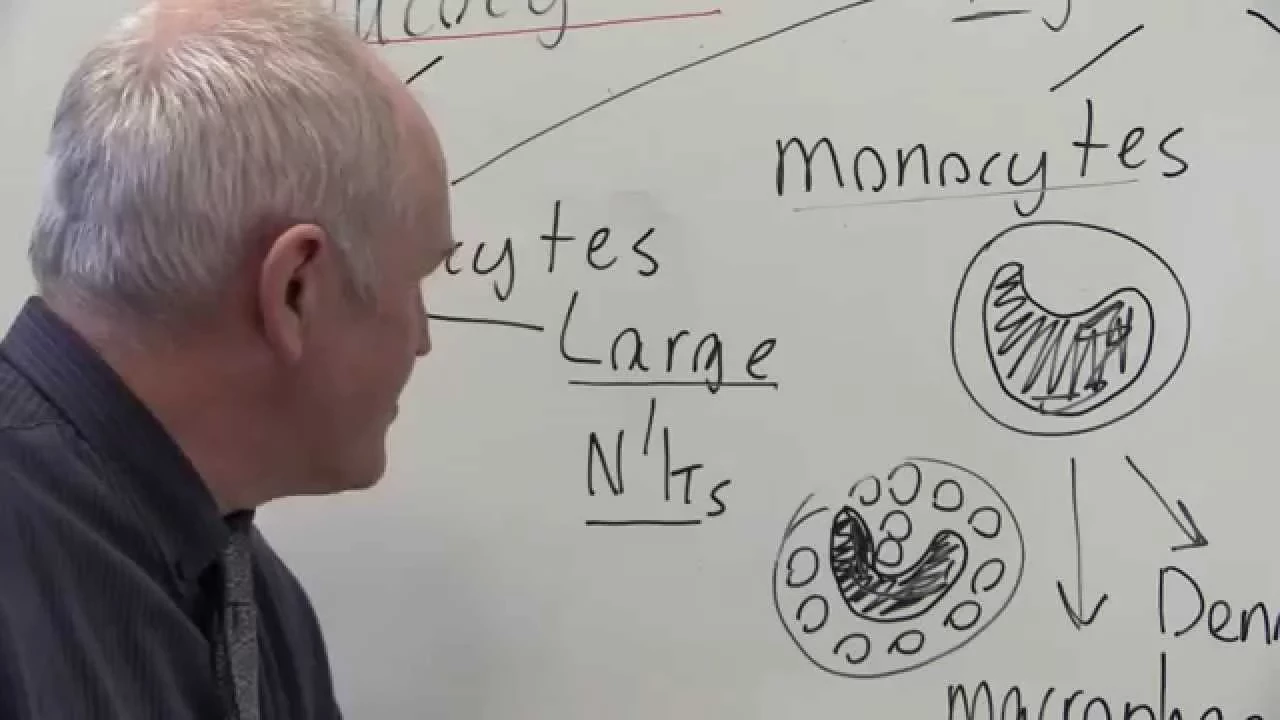 monocytes
cytes
Large
N'KTs
Den
macropha